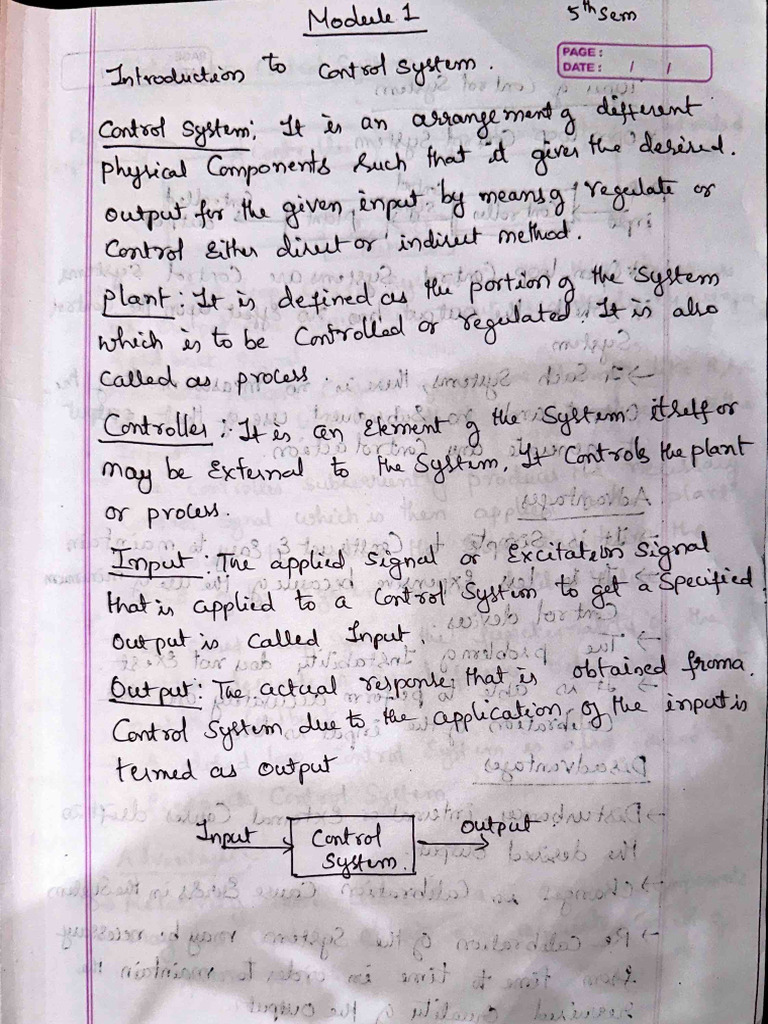 Module 1
5th Sem
PAGE:
DATE: / /
Introduction to Control System.
Control System: It is an arrangement of different
physical Components Such that it gives the desired.
output for the given input by means of regulate or
Control Either direct or indirect method.
Plant: It is defined as the portion of the System
which is to be Controlled or regulated. It is also
called as process.
Controller: It is an Element of the System itself or
may be External to the System. It Controls the plant
or process.
Input: The applied Signal or Excitation Signal
that is applied to a Control System to get a Specified
Output is called Input.
Output: The actual response that is obtained from a
Control System due to the application of the input is
termed as output
Input
Control
System.
Output